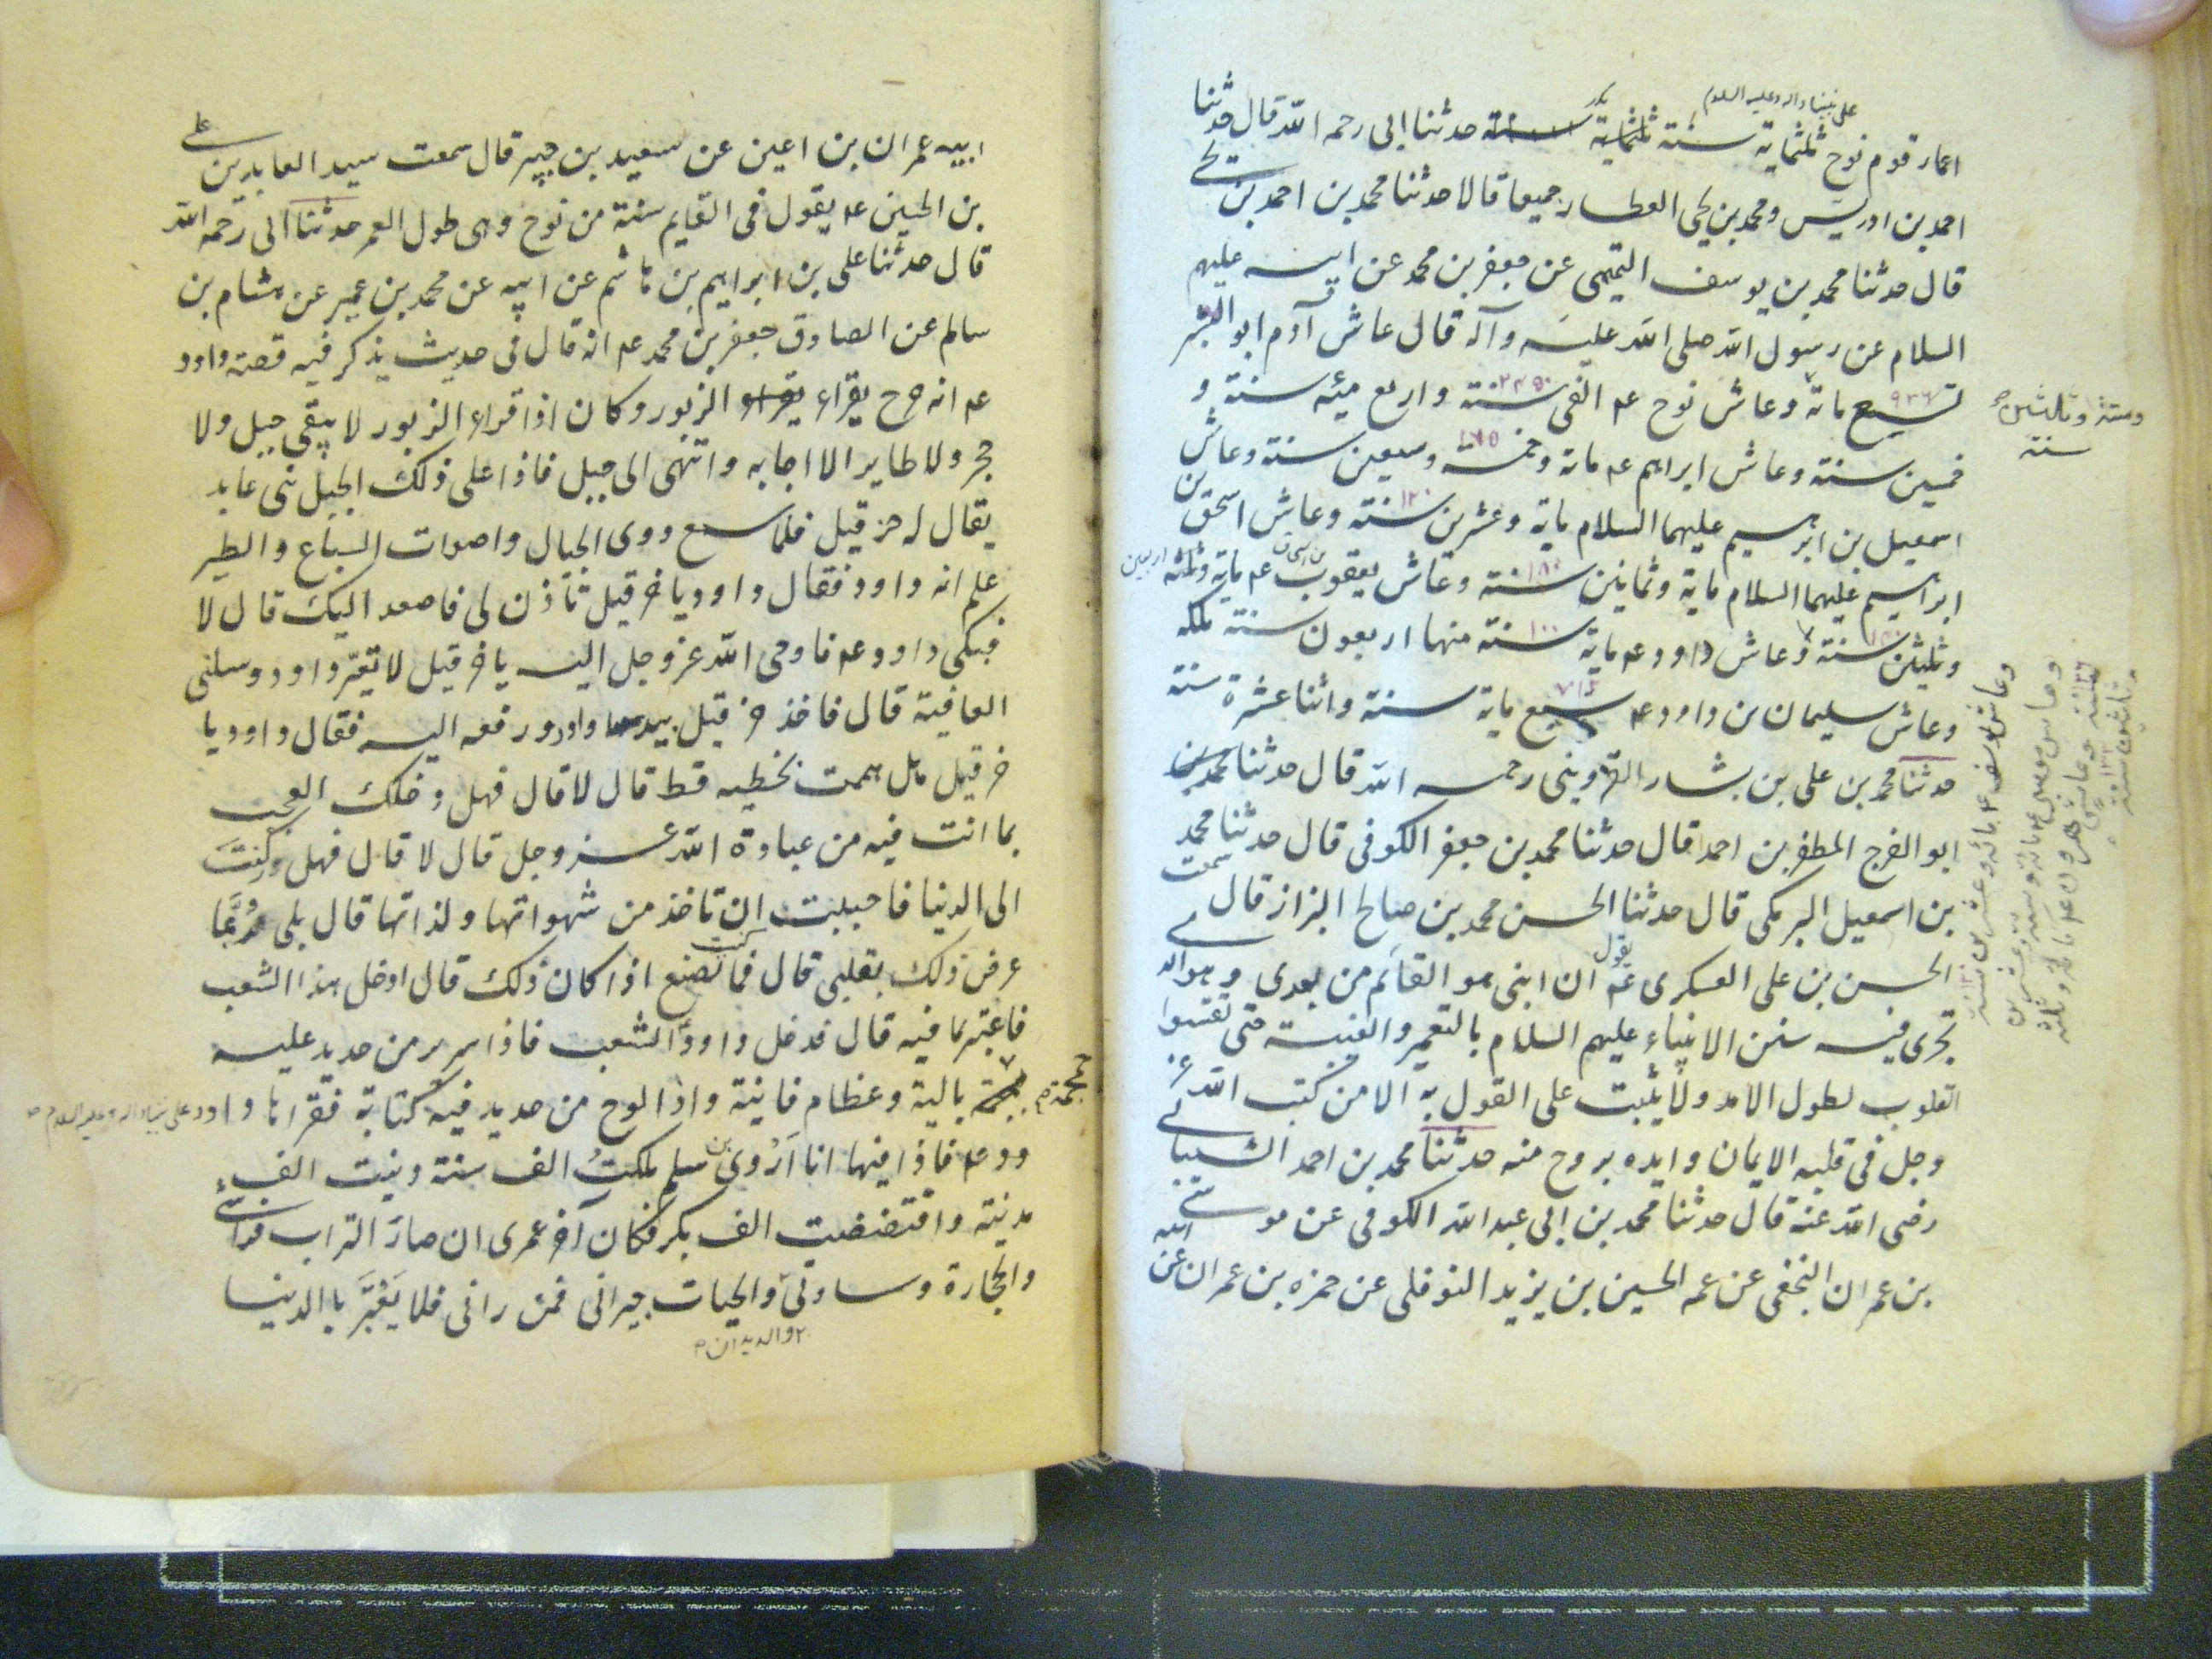 على نبينا واله وعليه السلام
اعمار قوم نوح ثلثماية سنة ثلثماية سنة حدثنا ابى رحمه الله قال حدثنا
احمد بن ادريس ومحمد بن يحيى العطار جميعا قالا حدثنا محمد بن احمد بن يحيى
قال حدثنا محمد بن يوسف التميمى عن جعفر بن محمد عن ابيه عليهم
السلام عن رسول الله صلى الله عليه وآله قال عاش آدم ابو البشر
تسع مائة وعاش نوح عم الفى سنة واربع مئه سنة و
وستة وثلثين سنة
٩٣٦ ٢٤٥٠
خمسين سنة وعاش ابراهيم عم مائة وخمسة وسبعين سنة وعاش
١٧٥
اسمعيل بن ابرهيم عليهما السلام ماية وعشرين سنة وعاش اسحق بن
١٢٠
ابراهيم عليهما السلام ماية وثمانين سنة وعاش يعقوب بن اسحق عم ماية
١٨٠
اربعين
وثلثين سنة وعاش داود عم ماية سنة منها اربعون سنة ملكه
١٠٠
وعاش سليمان بن داود عم سبع ماية سنة واثنا عشرة سنة
٧١٢
وعاش يوسف عم مائه وعشرين سنة
وعاش موسى عم مائة وستة وعشرين
سنة وعاش هرون عم مائة وثلثة
وثلثون سنة
حدثنا محمد بن على بن بشار القزوينى رحمه الله قال حدثنا
ابو الفرج المظفر بن احمد قال حدثنا محمد بن جعفر الكوفى قال حدثنا محمد
بن اسمعيل البرمكى قال حدثنا الحسن محمد بن صالح البزاز قال سمعت
الحسن بن على العسكرى عم يقول ان ابنى هو القائم من بعدى وهو الذى
تجرى فيه سنن الانبياء عليهم السلام بالتعمير والغيبة حتى تقسوا
القلوب لطول الامد ولا يثبت على القول به الا من كتب الله عز
وجل فى قلبه الايمان وايده بروح منه حدثنا محمد بن احمد الشيبانى
رضى الله عنه قال حدثنا محمد بن ابى عبد الله الكوفى عن موسى
بن عمران النخعى عن عمه الحسين بن يزيد النوفلى عن حمزه بن عمران عن ابيه
ابيه عمران بن اعين عن سعيد بن جبير قال سمعت سيد العابدين على
بن الحسين عم يقول فى القايم سنة من نوح وهى طول العمر حدثنا ابى رحمه الله
قال حدثنا على بن ابراهيم بن هاشم عن ابيه عن محمد بن عمير عن هشام بن
سالم عن الصادق جعفر بن محمد عم انه قال فى حديث يذكر فيه قصة داود
عم انه خرج يقراء يقراء الزبور وكان اذا قراء الزبور لا يبقى جبل ولا
حجر ولا طاير الا اجابه وانتهى الى جبل فاذا على ذلك الجبل نبى عابد
يقال له حزقيل فلما سمع دوى الجبال واصوات السباع والطير
علم انه داود فقال داود يا خرقيل تأذن لى فاصعد اليك قال لا
فبكى داود عم فاوحى الله عز وجل اليه يا خرقيل لا تعير داود وسلنى
العافية قال فاخذ خرقيل بيد داود ورفعه اليه فقال داود يا
خرقيل هل هممت بخطيه قط قال لا قال فهل دخلك العجب
بما انت فيه من عبادة الله عز وجل قال لا قال فهل ركنت
الى الدنيا فاحببت ان تاخذ من شهواتها ولذاتها قال بلى وربما
عرض ذلك بقلبى قال فما كنت تصنع اذا كان ذلك قال ادخل هذا الشعب
فاعتبر بما فيه قال فدخل داود الشعب فاذا سرير من حديد عليه
جمجمة بالية وعظام فانية واذا لوح من حديد فيه كتابة فقراها داود على نبينا واله وعليه السلام
وود عم فاذا فيها انا اروى بن سلم ملكت الف سنة وبنيت الف
مدينة وافتضضت الف بكر فكان آخر عمرى ان صار التراب فراشى
والحجارة وسادتى والحيات جيرانى فمن رانى فلا يغتر بالدنيا
والديدان